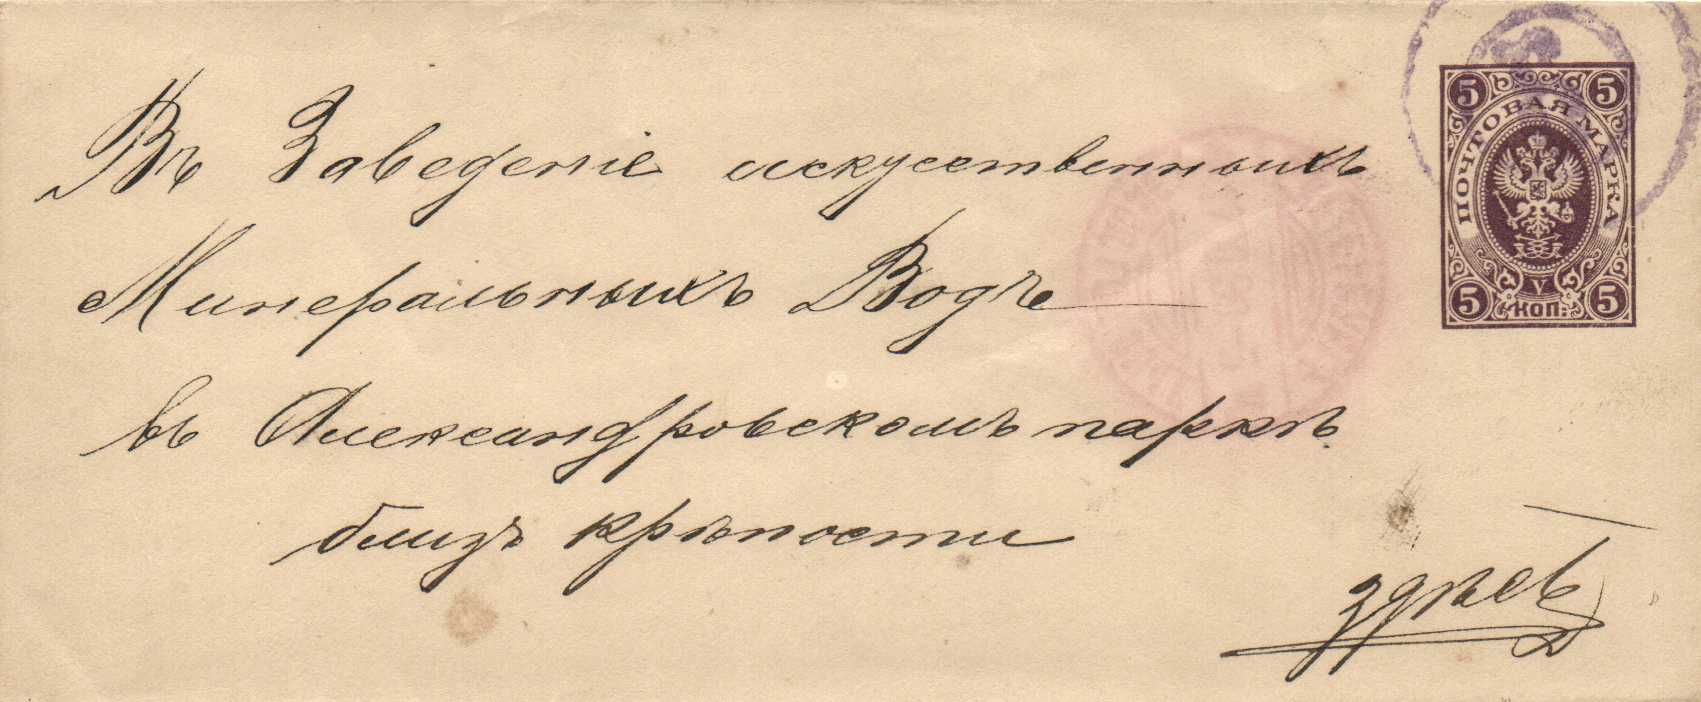 Въ Заведеніе искуственныхъ
Минеральныхъ Водъ
въ Александровскомъ паркѣ
близъ крѣпости
здѣсь
5 5
ПОЧТОВАЯ МАРКА
5 V 5
КОП: